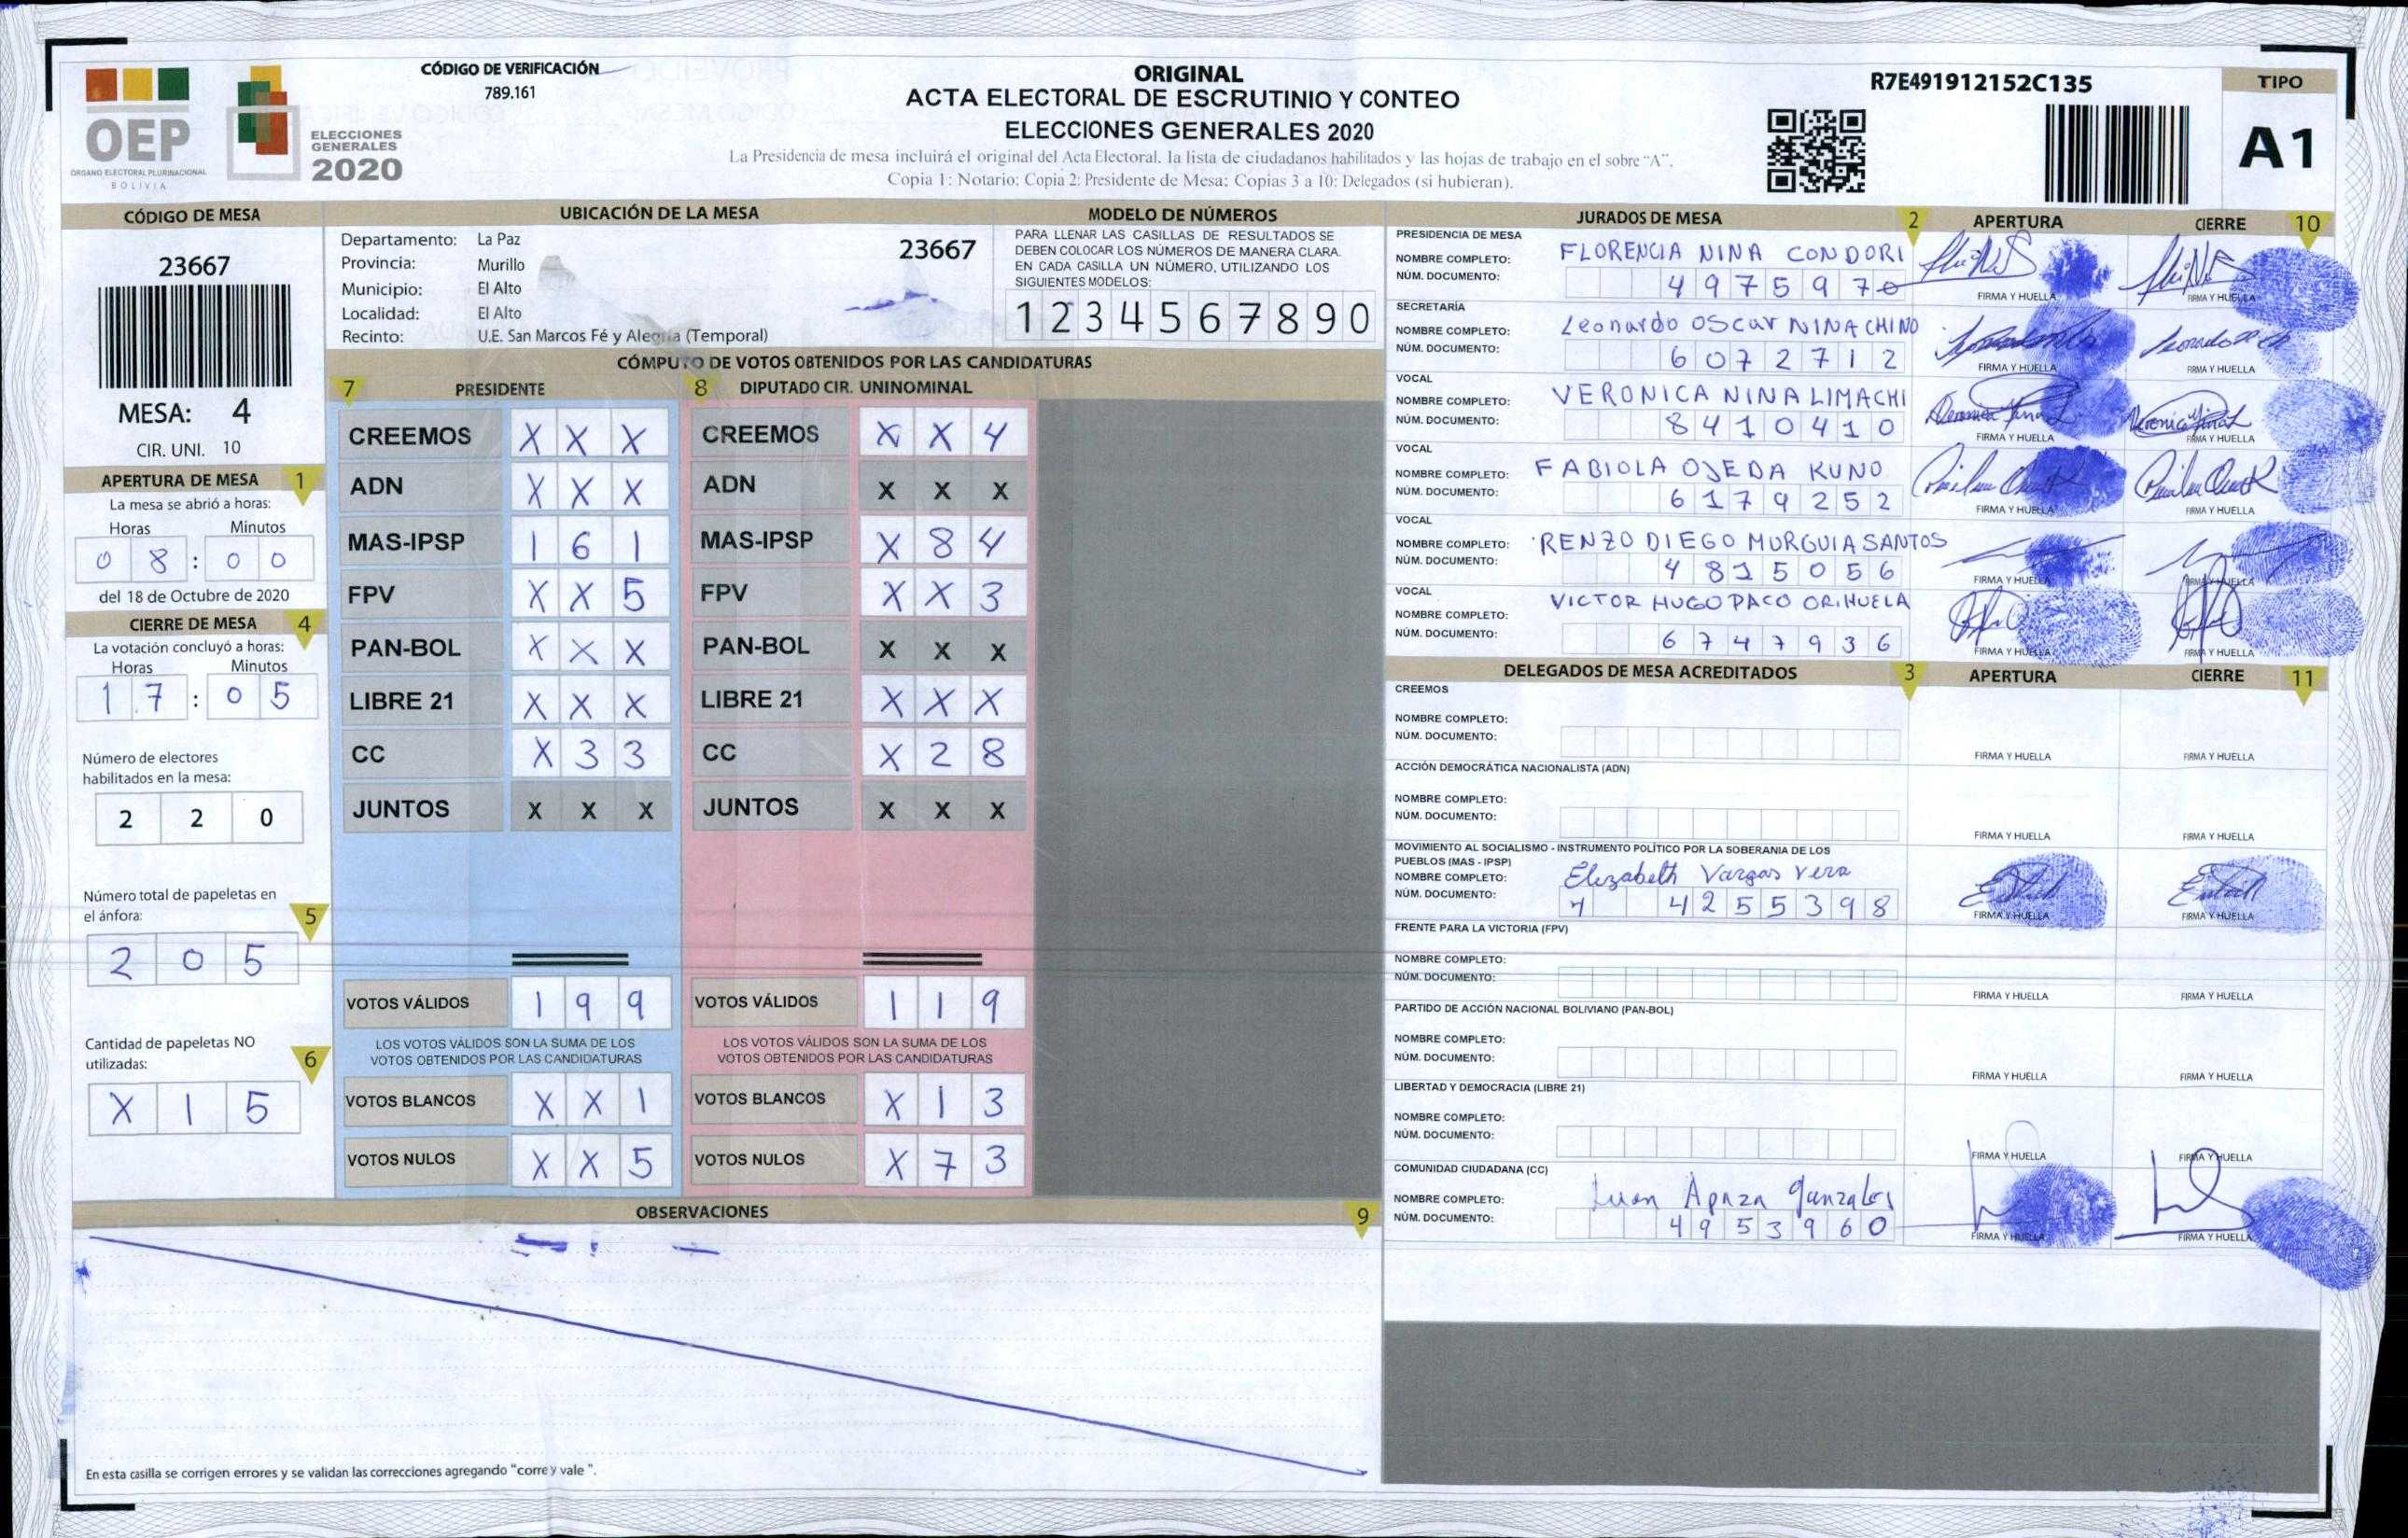 CÓDIGO DE VERIFICACIÓN
789.161
OEP
ÓRGANO ELECTORAL PLURINACIONAL
BOLIVIA
ELECCIONES
GENERALES
2020
ORIGINAL
ACTA ELECTORAL DE ESCRUTINIO Y CONTEO
ELECCIONES GENERALES 2020
La Presidencia de mesa incluirá el original del Acta Electoral, la lista de ciudadanos habilitados y las hojas de trabajo en el sobre “A”.
Copia 1: Notario; Copia 2: Presidente de Mesa; Copias 3 a 10: Delegados (si hubieran).
R7E491912152C135
TIPO
A1
CÓDIGO DE MESA
23667
MESA: 4
CIR. UNI. 10
APERTURA DE MESA 1
La mesa se abrió a horas:
Horas Minutos
0 8 : 0 0
del 18 de Octubre de 2020
CIERRE DE MESA 4
La votación concluyó a horas:
Horas Minutos
1 7 : 0 5
Número de electores
habilitados en la mesa:
2 2 0
Número total de papeletas en
el ánfora: 5
2 0 5
Cantidad de papeletas NO
utilizadas: 6
X 1 5
UBICACIÓN DE LA MESA
Departamento: La Paz 23667
Provincia: Murillo
Municipio: El Alto
Localidad: El Alto
Recinto: U.E. San Marcos Fé y Alegria (Temporal)
MODELO DE NÚMEROS
PARA LLENAR LAS CASILLAS DE RESULTADOS SE
DEBEN COLOCAR LOS NÚMEROS DE MANERA CLARA.
EN CADA CASILLA UN NÚMERO, UTILIZANDO LOS
SIGUIENTES MODELOS:
1 2 3 4 5 6 7 8 9 0
CÓMPUTO DE VOTOS OBTENIDOS POR LAS CANDIDATURAS
7 PRESIDENTE 8 DIPUTADO CIR. UNINOMINAL
CREEMOS X X X CREEMOS X X 4
ADN X X X ADN X X X
MAS-IPSP 1 6 1 MAS-IPSP X 8 4
FPV X X 5 FPV X X 3
PAN-BOL X X X PAN-BOL X X X
LIBRE 21 X X X LIBRE 21 X X X
CC X 3 3 CC X 2 8
JUNTOS X X X JUNTOS X X X
VOTOS VÁLIDOS 1 9 9 VOTOS VÁLIDOS 1 1 9
LOS VOTOS VÁLIDOS SON LA SUMA DE LOS LOS VOTOS VÁLIDOS SON LA SUMA DE LOS
VOTOS OBTENIDOS POR LAS CANDIDATURAS VOTOS OBTENIDOS POR LAS CANDIDATURAS
VOTOS BLANCOS X X 1 VOTOS BLANCOS X 1 3
VOTOS NULOS X X 5 VOTOS NULOS X 7 3
OBSERVACIONES 9
En esta casilla se corrigen errores y se validan las correcciones agregando "corre y vale ".
JURADOS DE MESA 2 APERTURA CIERRE 10
PRESIDENCIA DE MESA
NOMBRE COMPLETO: FLORENCIA NINA CONDORI
NÚM. DOCUMENTO: 4 9 7 5 9 7 0
FIRMA Y HUELLA FIRMA Y HUELLA
SECRETARÍA
NOMBRE COMPLETO: Leonardo OSCAR NINA CHINO
NÚM. DOCUMENTO: 6 0 7 2 7 1 2
FIRMA Y HUELLA FIRMA Y HUELLA
VOCAL
NOMBRE COMPLETO: VERONICA NINA LIMACHI
NÚM. DOCUMENTO: 8 4 1 0 4 1 0
FIRMA Y HUELLA FIRMA Y HUELLA
VOCAL
NOMBRE COMPLETO: FABIOLA OJEDA KUNO
NÚM. DOCUMENTO: 6 1 7 9 2 5 2
FIRMA Y HUELLA FIRMA Y HUELLA
VOCAL
NOMBRE COMPLETO: RENZO DIEGO MURGUIA SANTOS
NÚM. DOCUMENTO: 4 8 1 5 0 5 6
FIRMA Y HUELLA FIRMA Y HUELLA
VOCAL
NOMBRE COMPLETO: VICTOR HUGO PACO ORIHUELA
NÚM. DOCUMENTO: 6 7 4 7 9 3 6
FIRMA Y HUELLA FIRMA Y HUELLA
DELEGADOS DE MESA ACREDITADOS 3 APERTURA CIERRE 11
CREEMOS
NOMBRE COMPLETO:
NÚM. DOCUMENTO:
FIRMA Y HUELLA FIRMA Y HUELLA
ACCIÓN DEMOCRÁTICA NACIONALISTA (ADN)
NOMBRE COMPLETO:
NÚM. DOCUMENTO:
FIRMA Y HUELLA FIRMA Y HUELLA
MOVIMIENTO AL SOCIALISMO - INSTRUMENTO POLÍTICO POR LA SOBERANIA DE LOS
PUEBLOS (MAS - IPSP)
NOMBRE COMPLETO: Elizabeth Vargas Vera
NÚM. DOCUMENTO: 4 2 5 5 3 9 8
FIRMA Y HUELLA FIRMA Y HUELLA
FRENTE PARA LA VICTORIA (FPV)
NOMBRE COMPLETO:
NÚM. DOCUMENTO:
FIRMA Y HUELLA FIRMA Y HUELLA
PARTIDO DE ACCIÓN NACIONAL BOLIVIANO (PAN-BOL)
NOMBRE COMPLETO:
NÚM. DOCUMENTO:
FIRMA Y HUELLA FIRMA Y HUELLA
LIBERTAD Y DEMOCRACIA (LIBRE 21)
NOMBRE COMPLETO:
NÚM. DOCUMENTO:
FIRMA Y HUELLA FIRMA Y HUELLA
COMUNIDAD CIUDADANA (CC)
NOMBRE COMPLETO: Juan Apaza Gunzales
NÚM. DOCUMENTO: 4 9 5 3 9 6 0
FIRMA Y HUELLA FIRMA Y HUELLA